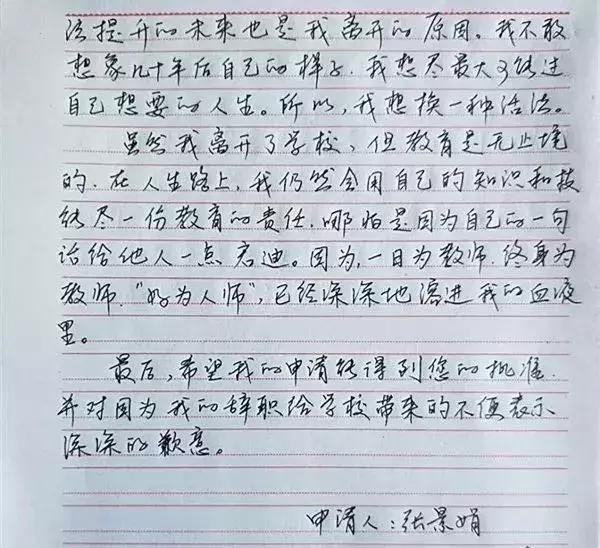 法提升的未来也是我离开的原因。我不敢
想象几十年后自己的样子，我想尽最大可能过
自己想要的人生。所以，我想换一种活法。
虽然我离开了学校，但教育是无止境
的，在人生路上，我仍然会用自己的知识和技
能尽一份教育的责任，哪怕是因为自己的一句
话给他人一点启迪。因为，一日为教师，终身为
教师，“好为人师”，已经深深地溶进我的血液
里。
最后，希望我的申请能得到您的批准，
并对因为我的辞职给学校带来的不便表示
深深的歉意。
申请人：张景娟